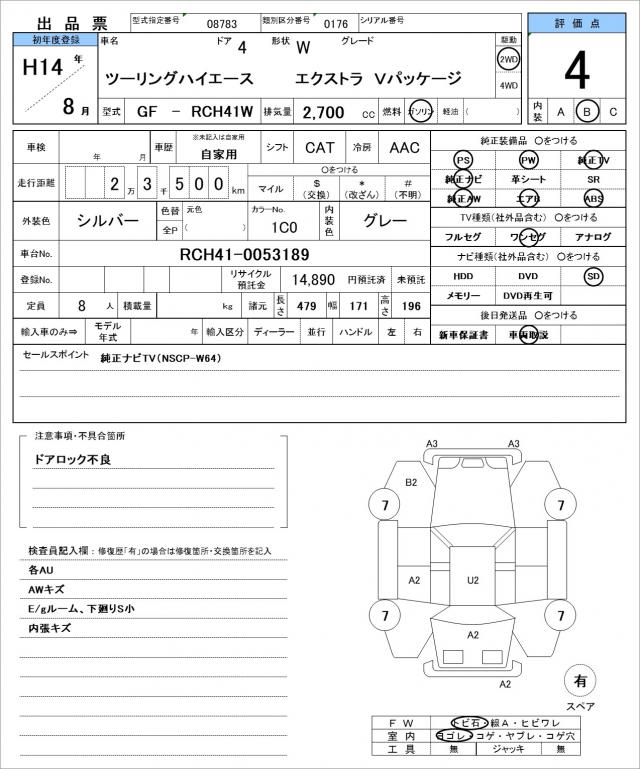 出品票 型式指定番号 08783 類別区分番号 0176 シリアル番号 評価点
初年度登録 車名 ドア 4 形状 W グレード 駆動
H14 年 ツーリングハイエース エクストラ Vパッケージ 2WD 4
8 月 4WD
型式 GF － RCH41W 排気量 2,700 cc 燃料 ガソリン 軽油 ( ) 内装 A B C
車検 年 月 車歴 ※未記入は自家用 自家用 シフト CAT 冷房 AAC 純正装備品 〇をつける
PS PW 純正TV
走行距離 2 万 3 千 5 0 0 km 〇をつける マイル $ (交換) * (改ざん) # (不明) 純正ナビ 革シート SR
純正AW エアB ABS
外装色 シルバー 色替 元色 カラーNo. 内装色 グレー TV種類(社外品含む) 〇をつける
全P ( ) 1C0 フルセグ ワンセグ アナログ
車台No. RCH41-0053189 ナビ種類(社外品含む) 〇をつける
登録No. リサイクル預託金 14,890 円預託済 未預託 HDD DVD SD
定員 8 人 積載量 kg 諸元 長さ 479 幅 171 高さ 196 メモリー DVD再生可
後日発送品 〇をつける
輸入車のみ⇒ モデル年式 年 輸入区分 ディーラー 並行 ハンドル 左 右 新車保証書 車両取説
セールスポイント 純正ナビTV(NSCP-W64)
注意事項・不具合箇所
ドアロック不良
検査員記入欄：修復歴「有」の場合は修復箇所・交換箇所を記入
各AU
AWキズ
E/gルーム、下廻りS小
内張キズ
A3 A3
B2
7 7
A2 U2
7 7
A2
A2
有
スペア
FW トビ石・線A・ヒビワレ
室内 ヨゴレ・コゲ・ヤブレ・コゲ穴
工具 無 ジャッキ 無